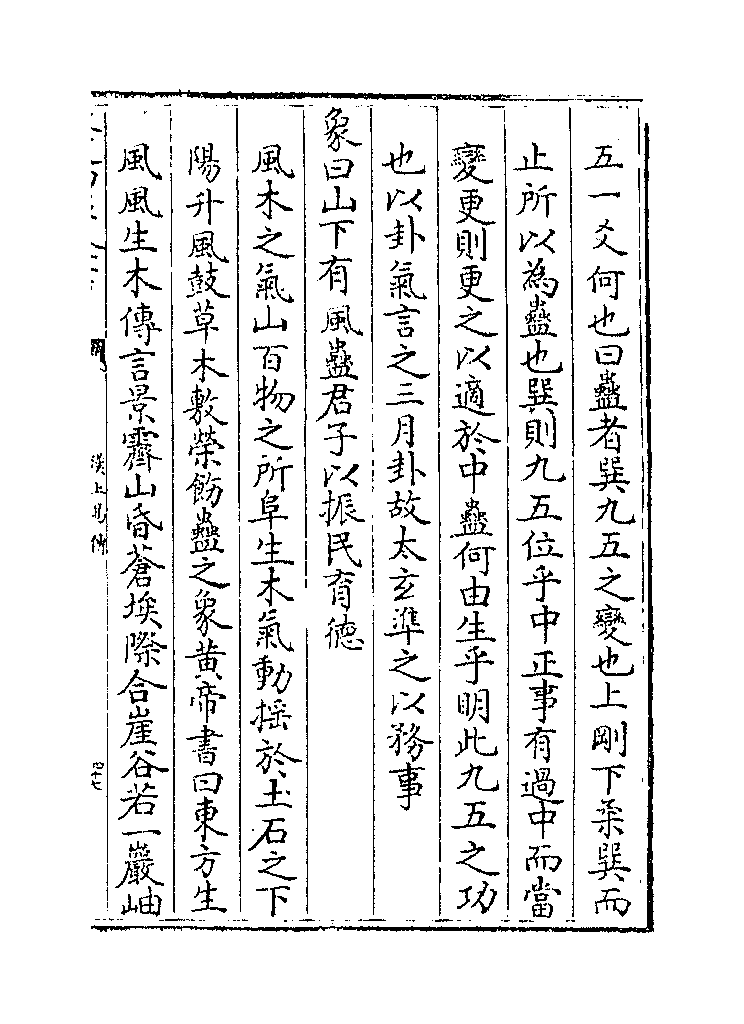 五一爻何也曰蠱者巽九五之變也上剛下柔巽而
止所以為蠱也巽則九五位乎中正事有過中而當
變更則更之以適於中蠱何由生乎明此九五之功
也以卦氣言之三月卦故太玄準之以務事
象曰山下有風蠱君子以振民育德
風木之氣山百物之所阜生木氣動揺於土石之下
陽升風鼓草木敷榮飭蠱之象黄帝書曰東方生
風風生木傳言景霽山昏蒼埃際合崖谷若一巖岫
漢上易傳
四十七